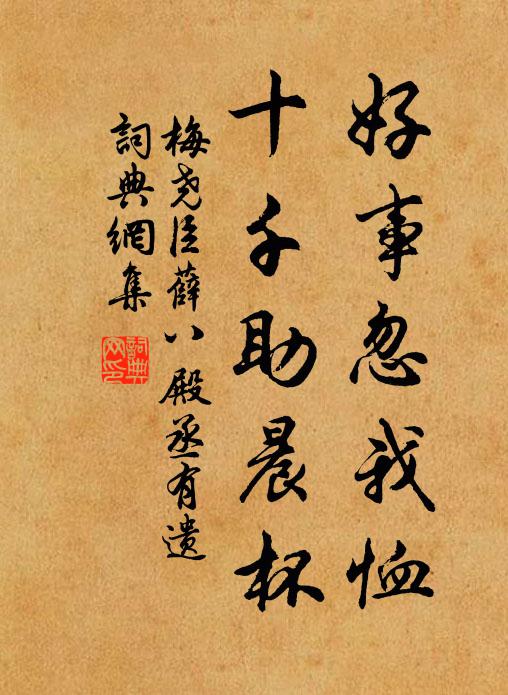 好事忽我恤
十千助晨杯
梅尧臣薛八殿丞有遗
詞典網集
詞典网印